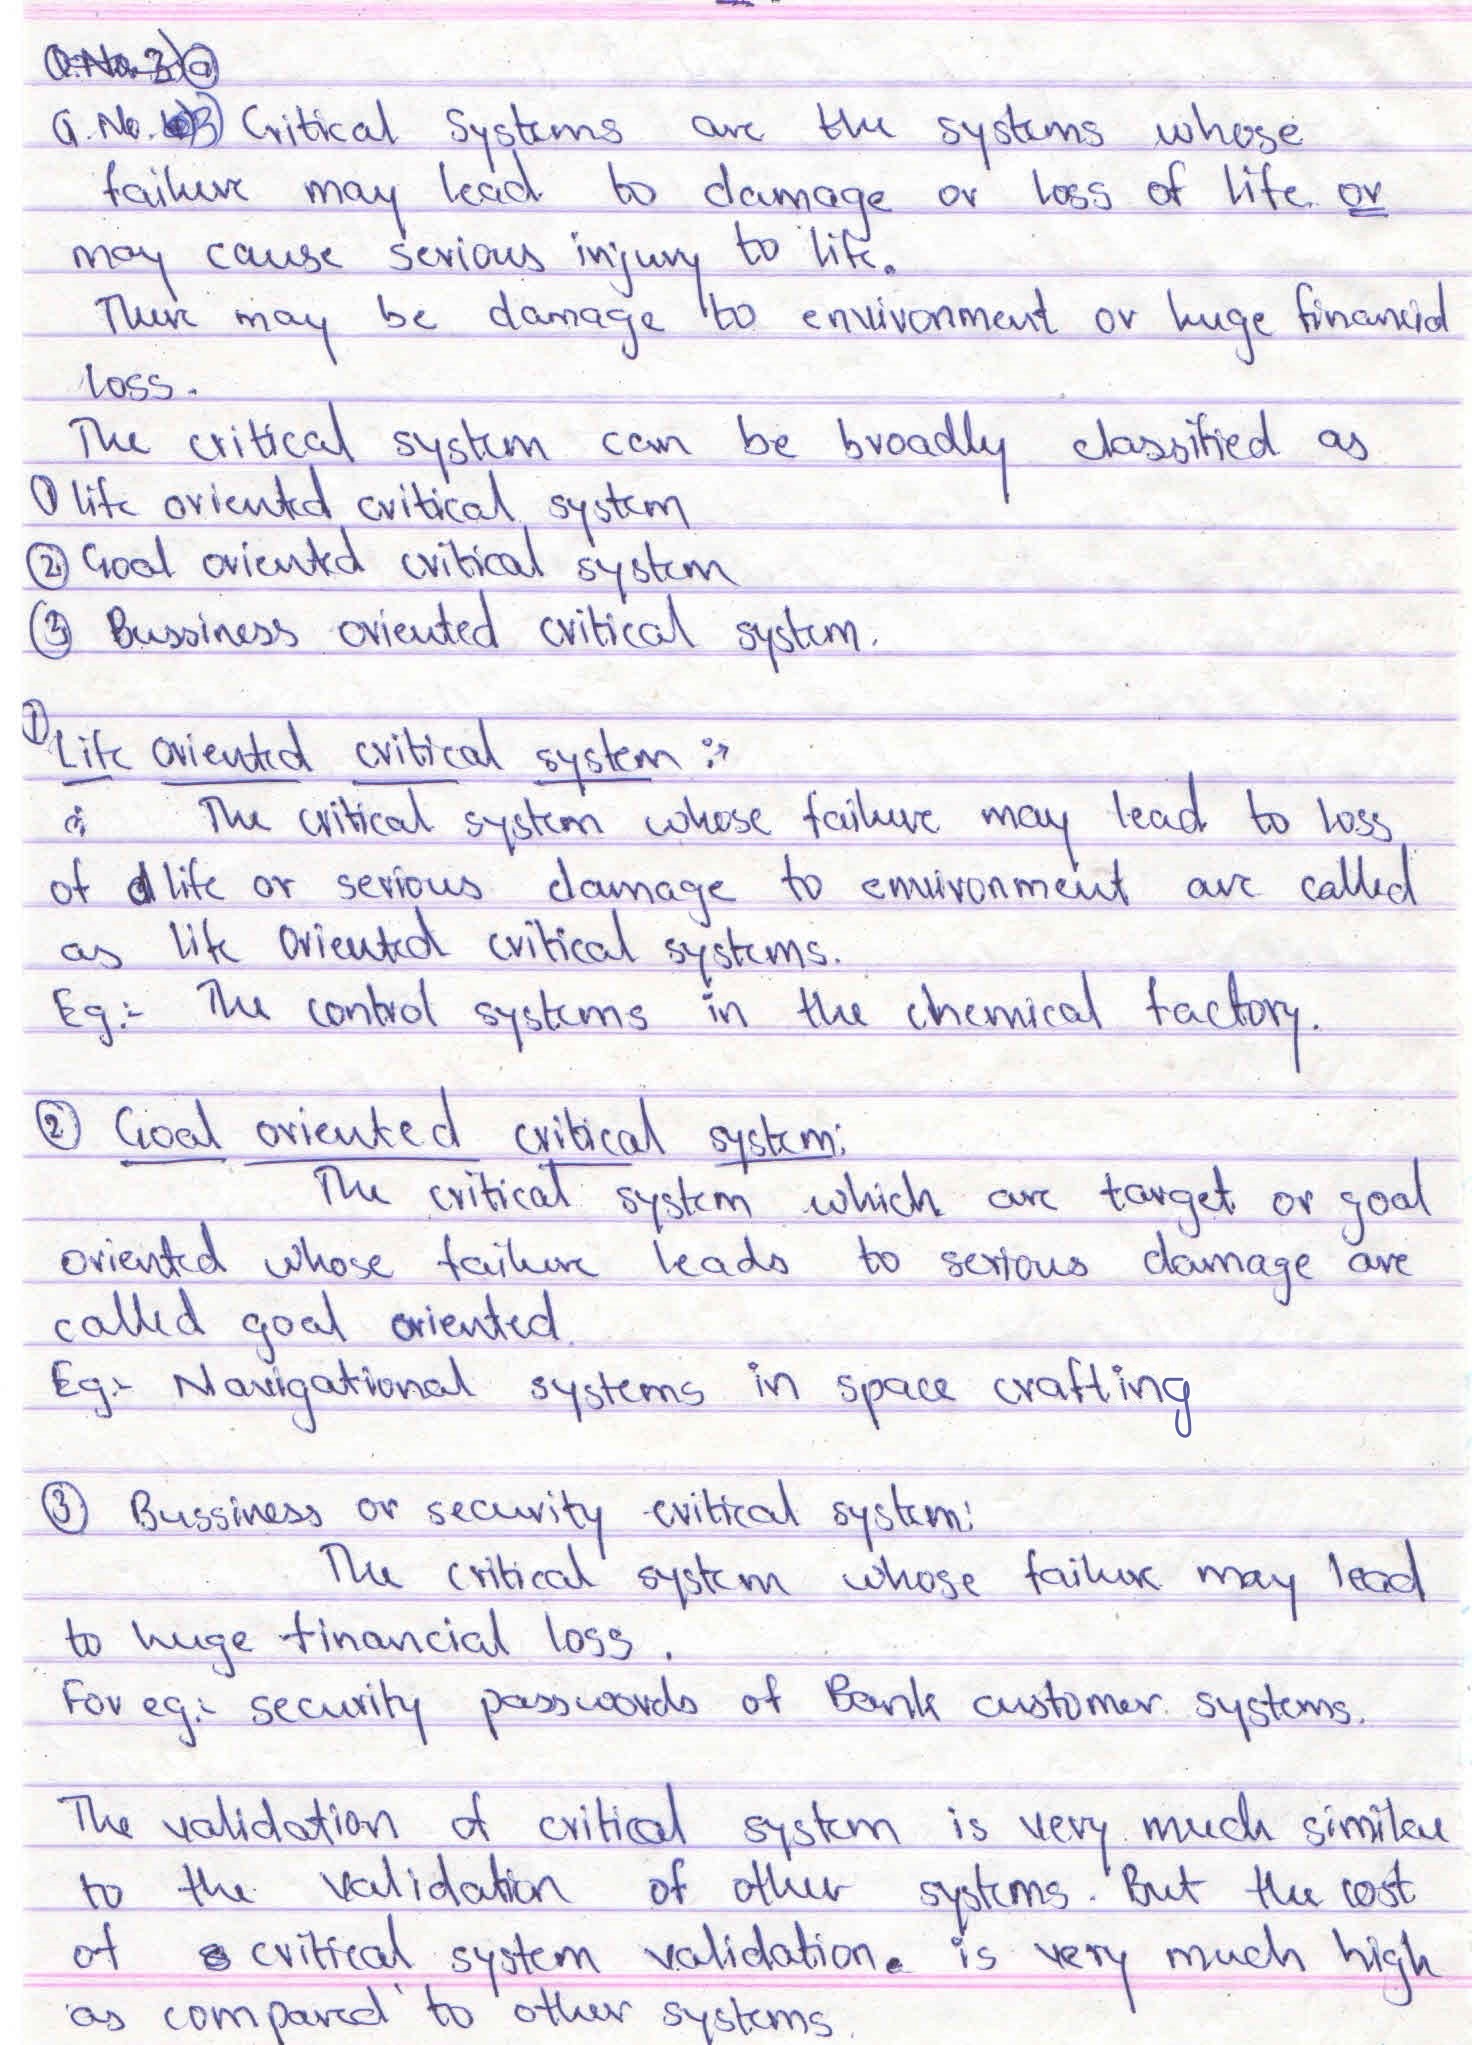 Q.No. 3) a
Q.No. 3) Critical Systems are the systems whose
failure may lead to damage or loss of life or
may cause serious injury to life.
There may be damage to environment or huge financial
loss.
The critical system can be broadly classified as
① life oriented critical system
② Goal oriented critical system
③ Bussiness oriented critical system.
① Life oriented critical system :→
The critical system whose failure may lead to loss
of life or serious damage to environment are called
as life oriented critical systems.
Eg:- The control systems in the chemical factory.
② Goal oriented critical system:
The critical system which are target or goal
oriented whose failure leads to serious damage are
called goal oriented.
Eg:- Navigational systems in space crafting
③ Bussiness or security critical system:
The critical system whose failure may lead
to huge financial loss.
For eg:- security passwords of Bank customer systems.
The validation of critical system is very much similar
to the validation of other systems. But the cost
of critical system validation. is very much high
as compared to other systems.